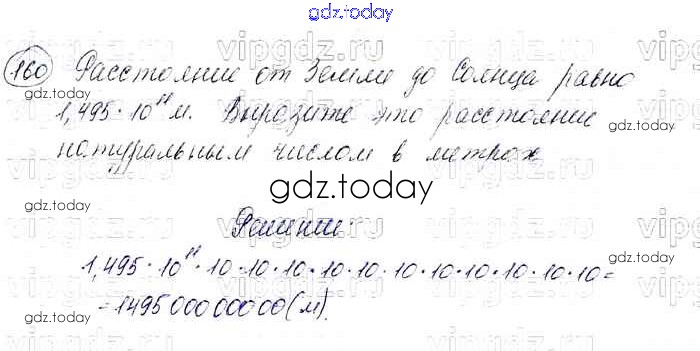 gdz.today
160 Расстояние от Земли до Солнца равно
1,495 · 10¹¹ м. Выразите это расстояние
натуральным числом в метрах
gdz.today
Решение:
1,495 · 10¹¹ · 10 · 10 · 10 · 10 · 10 · 10 · 10 · 10 · 10 · 10 · 10 =
= 149500000000 (м).
vipgdz.ru